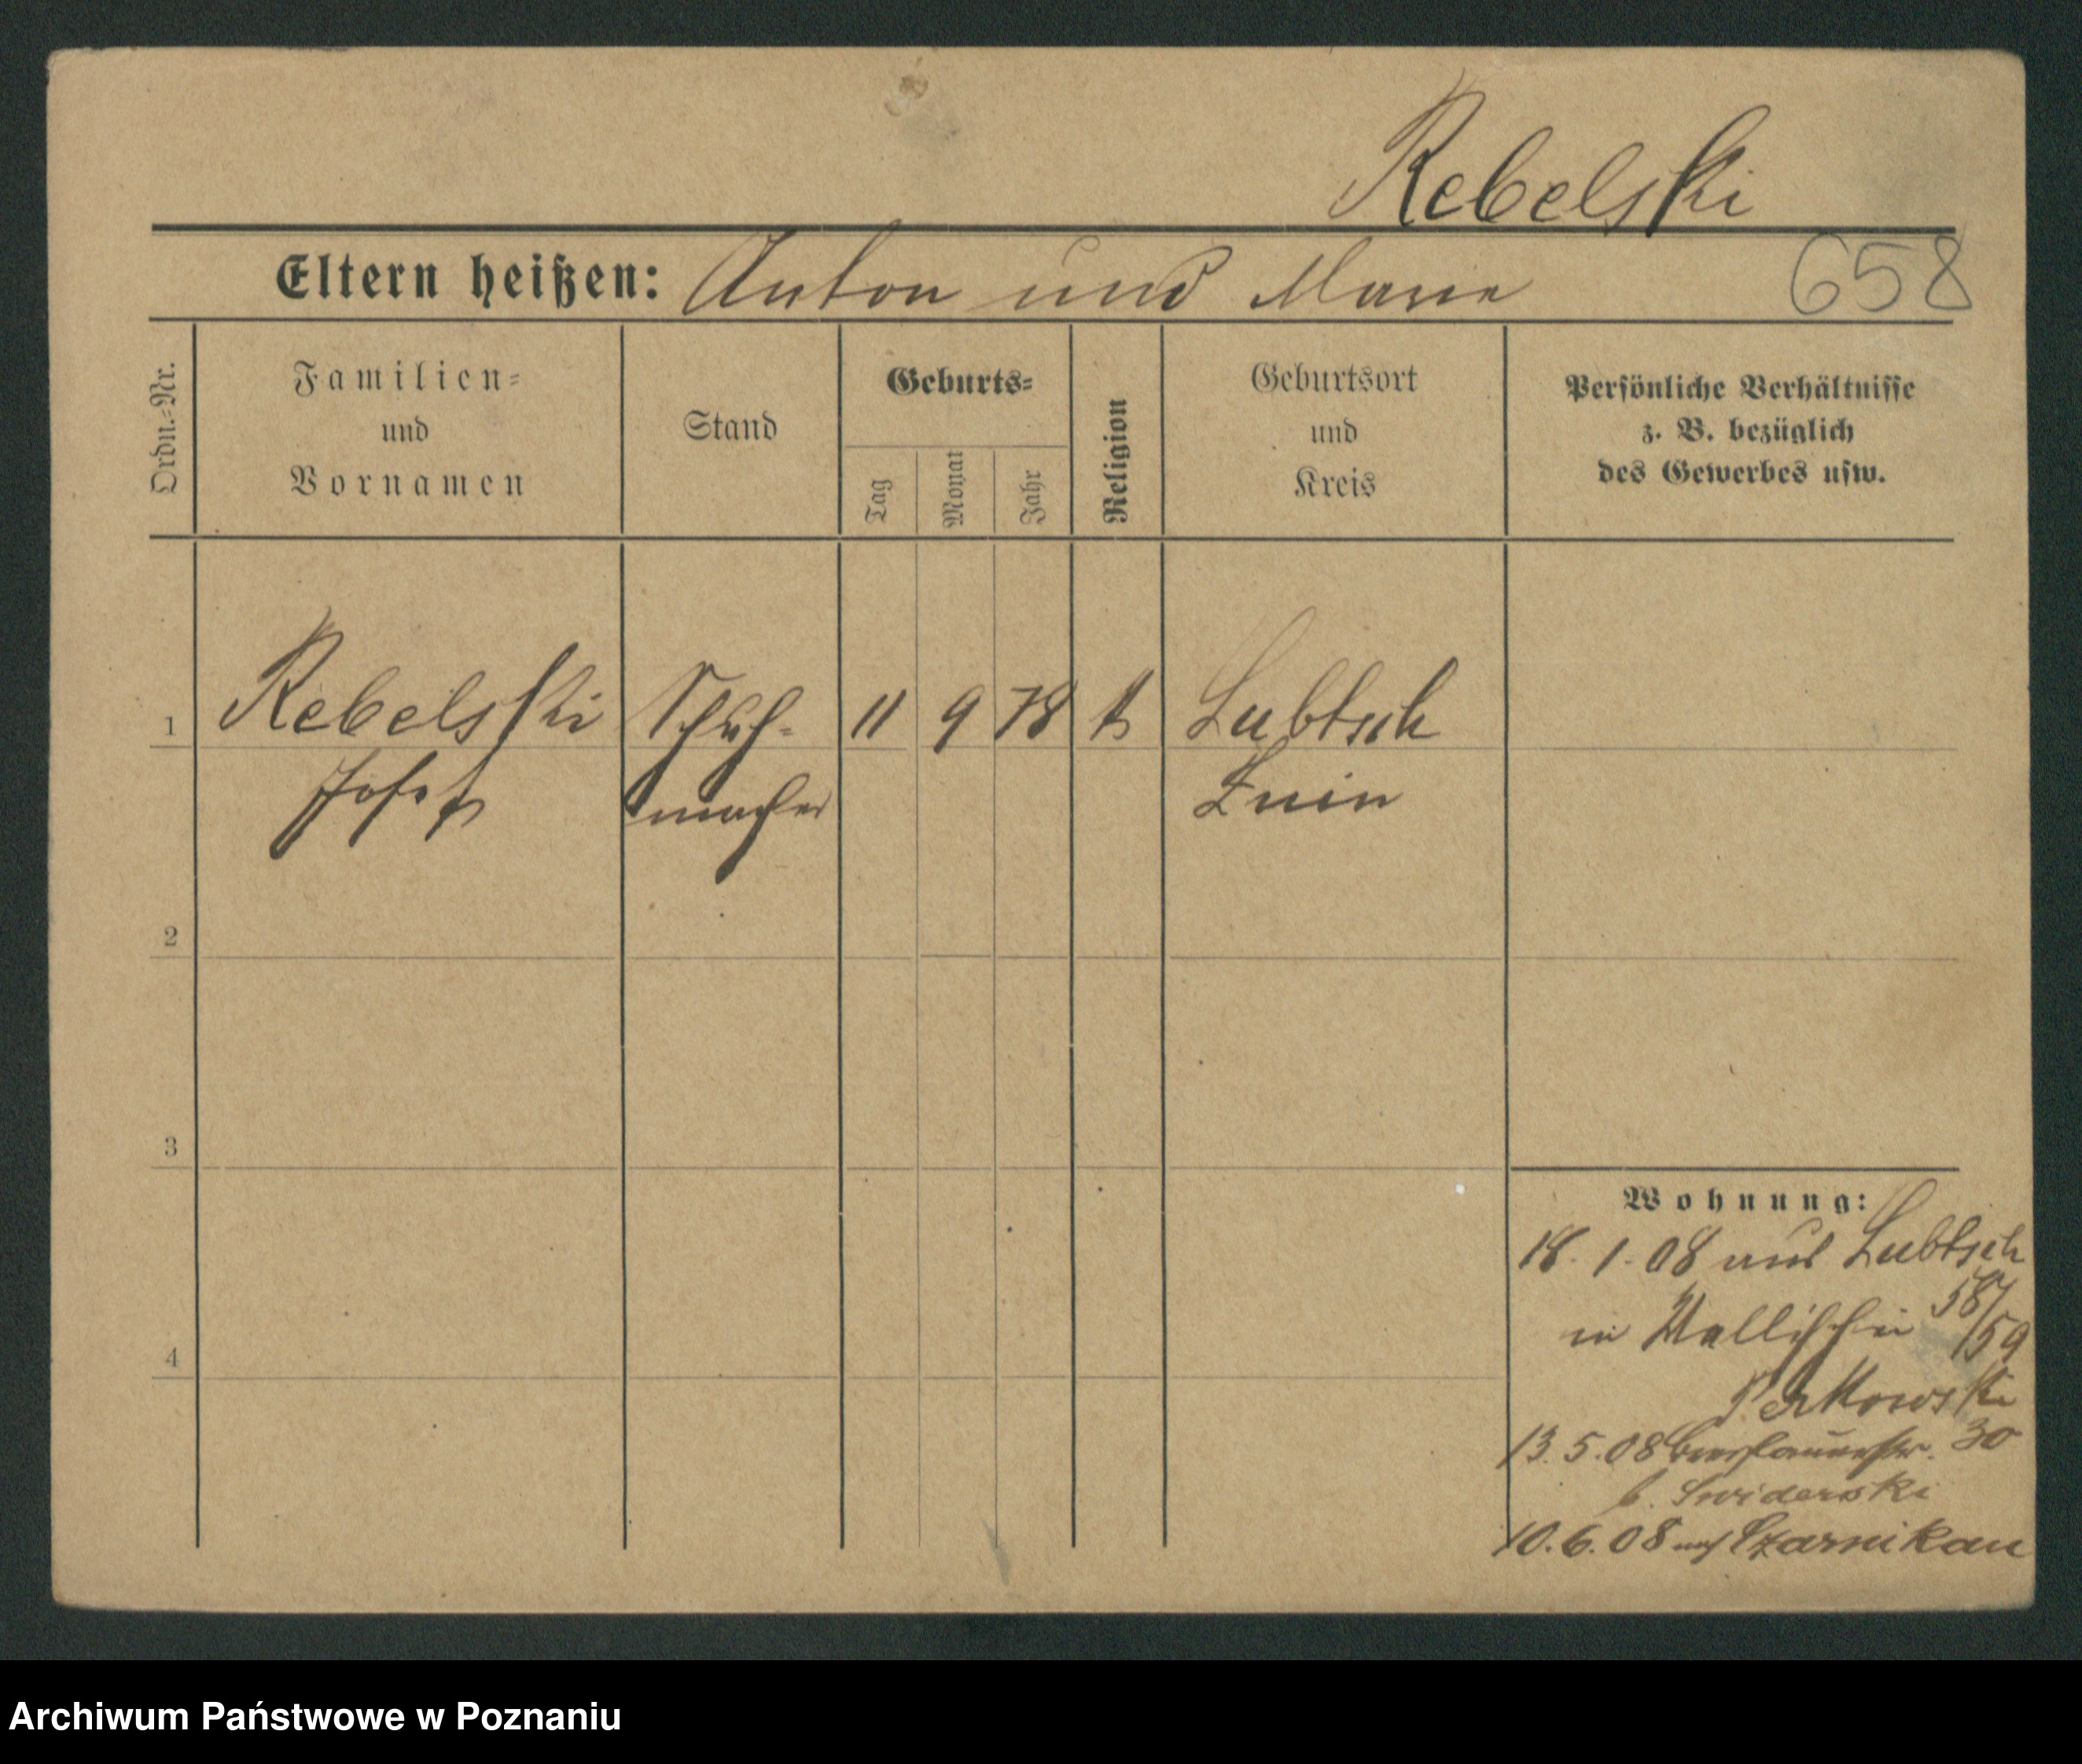 Rebelski
Eltern heißen: Anton und Marie
658
Ordn.-Nr.
Familien-
und
Vornamen
Stand
Geburts-
Tag
Monat
Jahr
Religion
Geburtsort
und
Kreis
Persönliche Verhältnisse
z. B. bezüglich
des Gewerbes usw.
1 Rebelski Schuh- 11 9 78 k Lubtsch
Josef macher Znin
2
3
4
Wohnung:
18.1.08 aus Lubtsch
in Wallischei 58/59
13.5.08 Breslauerstr. 30
b. Swiderski
10.6.08 nach Czarnikau
Archiwum Państwowe w Poznaniu